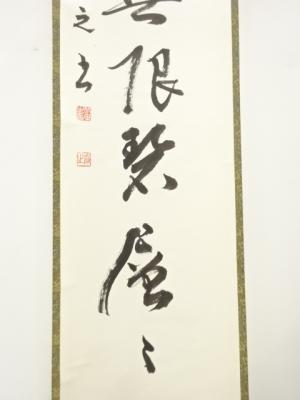 無限碧層々
之書